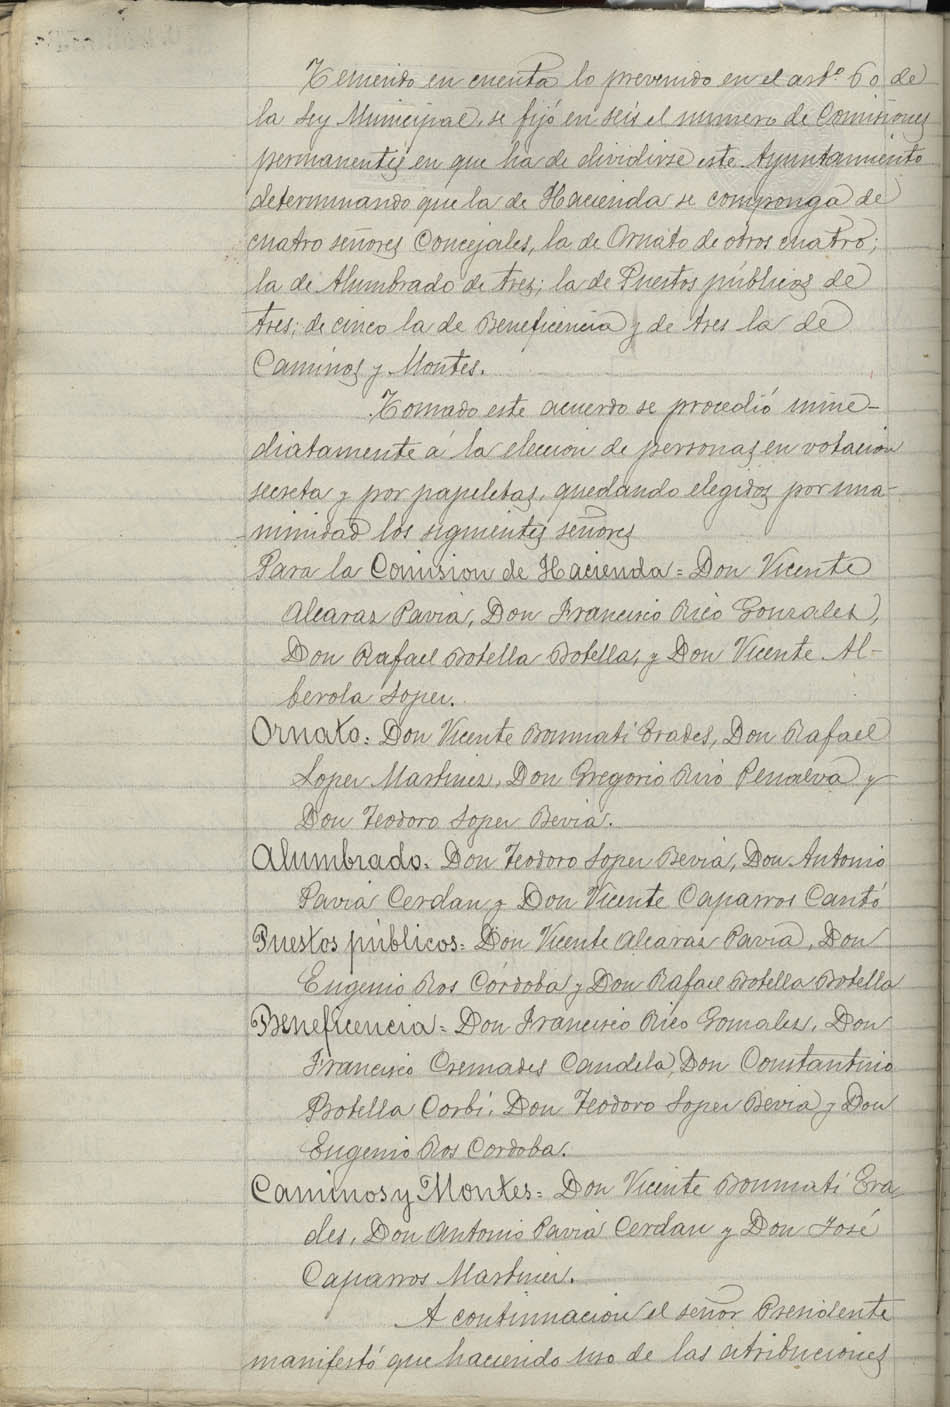 Teniendo en cuenta lo prevenido en el artº 60 de
la Ley Municipal, se fijó en seis el numero de Comisiones
permanentes en que ha de dividirse este Ayuntamiento
determinando que la de Hacienda se componga de
cuatro señores Concejales, la de Ornato de otros cuatro;
la de Alumbrado de tres; la de Puestos públicos de
tres; de cinco la de Beneficencia y de tres la de
Caminos y Montes.
Tomado este acuerdo se procedió inme-
diatamente á la eleccion de personas en votacion
secreta y por papeletas, quedando elegidos por una-
nimidad los siguientes señores
Para la Comision de Hacienda = Don Vicente
Alcaraz Pavia, Don Francisco Rico Gonzalez,
Don Rafael Botella Botella, y Don Vicente Al-
berola Soper.
Ornato = Don Vicente Bonmati Erades, Don Rafael
Soper Martinez, Don Gregorio Riró Penalva y
Don Teodoro Soper Bevia.
Alumbrado = Don Teodoro Soper Bevia, Don Antonio
Pavia Cerdan y Don Vicente Caparros Cantó
Puestos públicos = Don Vicente Alcaraz Pavia, Don
Eugenio Ros Córdoba y Don Rafael Botella Botella
Beneficencia = Don Francisco Rico Gonzalez, Don
Francisco Cremades Candela, Don Constantino
Botella Corbí, Don Teodoro Soper Bevia y Don
Eugenio Ros Cordoba.
Caminos y Montes = Don Vicente Bonmati Era-
des, Don Antonio Pavia Cerdan y Don José
Caparros Martinez.
A continuacion el señor Presidente
manifestó que haciendo uso de las atribuciones